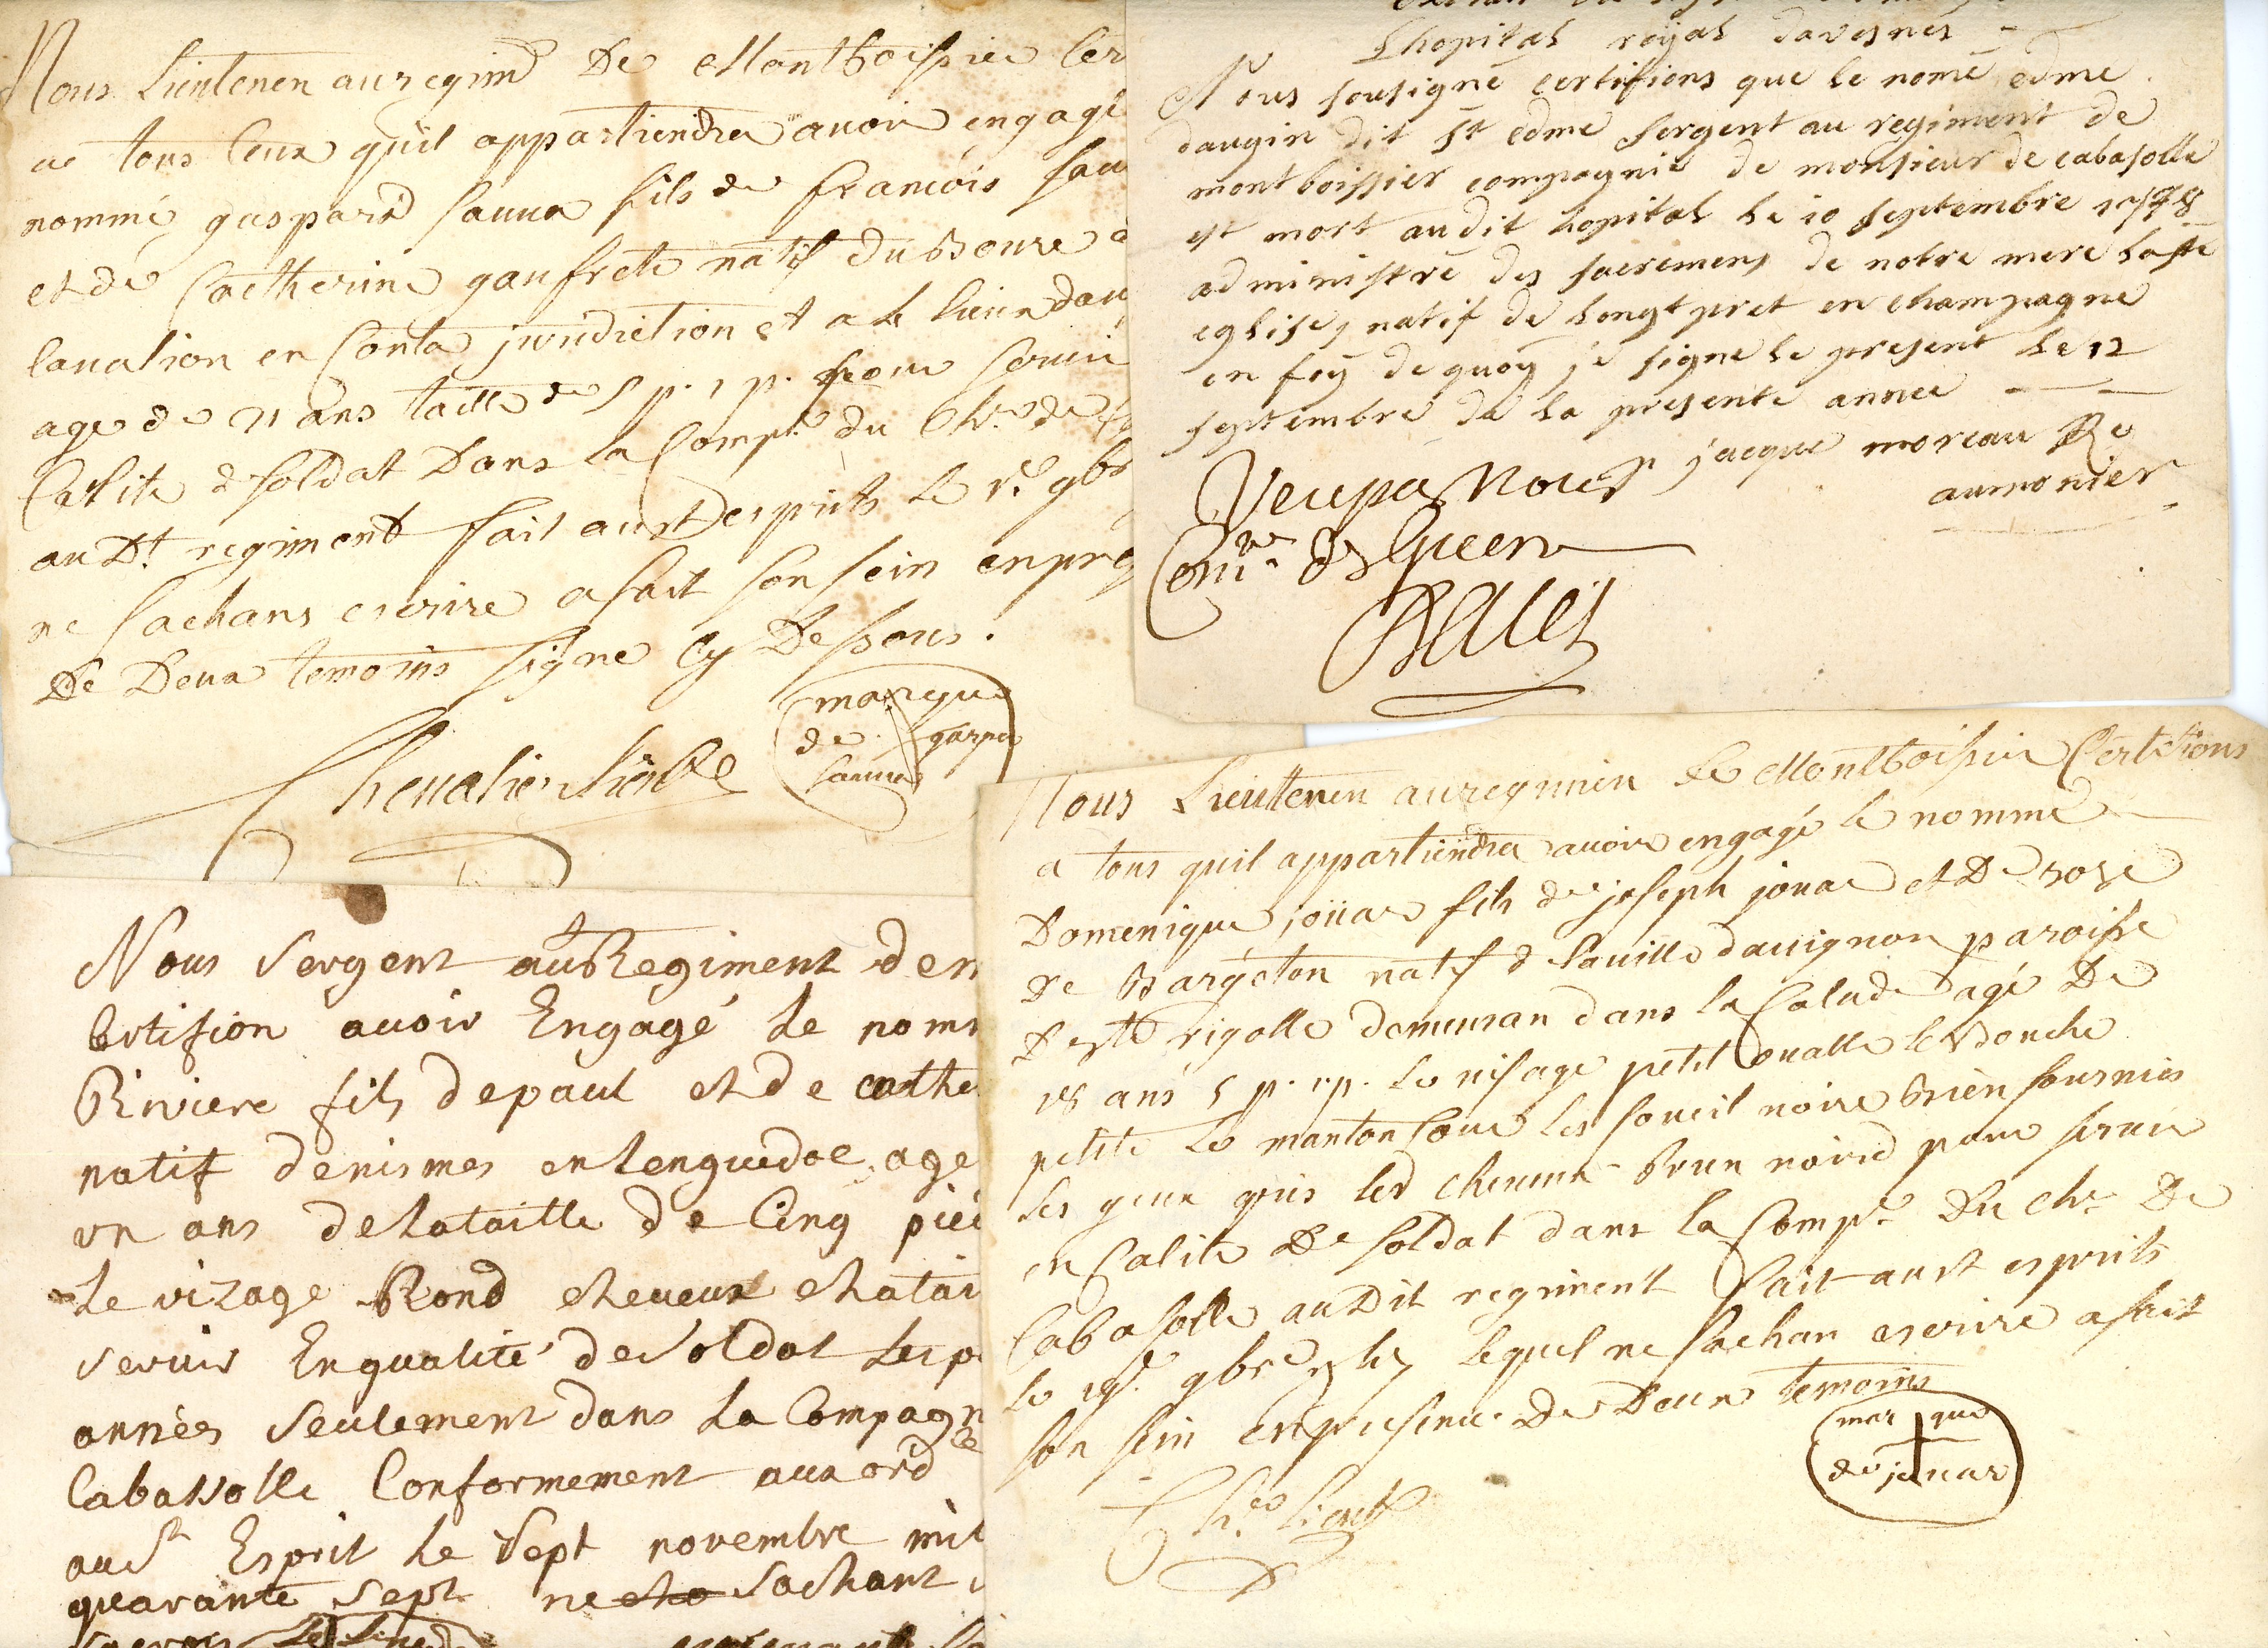 Nous Lieutenen au regim.d De Montboissier Cer
a tous Ceux quil appartiendra auoir engagé
nommé gaspard sauua fils de francois sau
et de Catherine gaufrete natif du
en Conta juridiction et
age de 21 ans taille de 5 p. 1 p. pour seruir
Calite d soldat Dans la Comp.e du Ch.er de
au D.t regiment fait au st esprits le
ne sachans escrire a fait son sein en pre
De Deux temoins signe Cy Dessous.
marque
de gaspa
sauua
Cheualier
Lhopital royal davesnes
Nous sousigné certifions que le nomé edme
daugin dit st edme sergent au regiment de
montboissier compagnie de monsieur de cabasolle
est mort audit hopital le 10 septembre 1748
administré des sacremens de notre mere la ste
eglise, natif de longt pret en champagne
en foy de quoy j'e signe le present le 12
septembre de la presente année
jacque moreau
aumonier
Veu par Nous
Com.re de Guerre
Nous Sergent au Regiment dem
Certifion auoir Engagé le nomm
Riviere fils de paul et de cathe
natif de nismes en lenguedoc, age
un ans de la taille de Cinq pié
le vizage Rond cheueux chatai
seruir En qualité de Soldat
années Seulement dans la Compagn
Cabassolle Conformement aux ord
au St Esprit le Sept novembre mil
quarante Sept ne Sachant
Nous Lieuttenen au regimin de Montboisier Certifions
a tous quil appartiendra auoir engagé le nommé
Domenique joüar fils de joseph jouar et De rose
De Bargeton natif d la uille dauignon paroisse
De ste rigolle demeuran dans la Calade agé De
18 ans 5 p. 1 p. le uisage petit oualle le bouche
petite le manton Cour les soucil noire bien fournies
les yeux gris les cheueux brun noire pour seruir
en Calite De soldat dans la Comp.e Du Ch.er De
Cabasolle au Dit regiment fait au st esprits
le 19.e 9bre 1747 lequel ne sachan escrire a fait
son sein en presence De Deux temoins
marque
de jouar